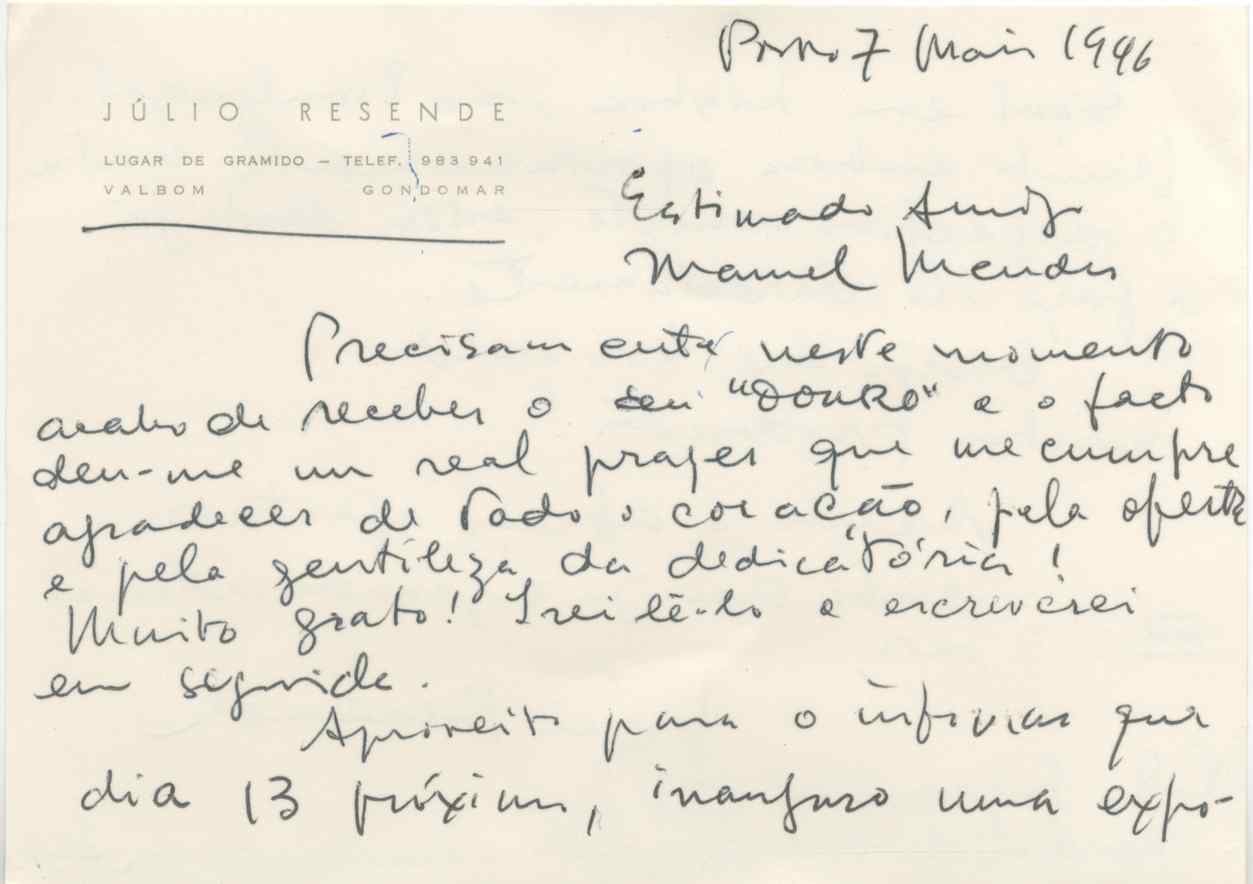 Porto 7 Maio 1996
JÚLIO RESENDE
LUGAR DE GRAMIDO — TELEF. 983 941
VALBOM GONDOMAR
Estimado Amigo
Manuel Mendes
Precisamente neste momento
acabo de receber o seu "DOURO" e o facto
deu-me um real prazer que me cumpre
agradecer de todo o coração, pela oferta
e pela gentileza da dedicatória!
Muito grato! Irei lê-lo e escreverei
em seguida.
Aproveito para o informar que
dia 13 próximo, inauguro uma expo-